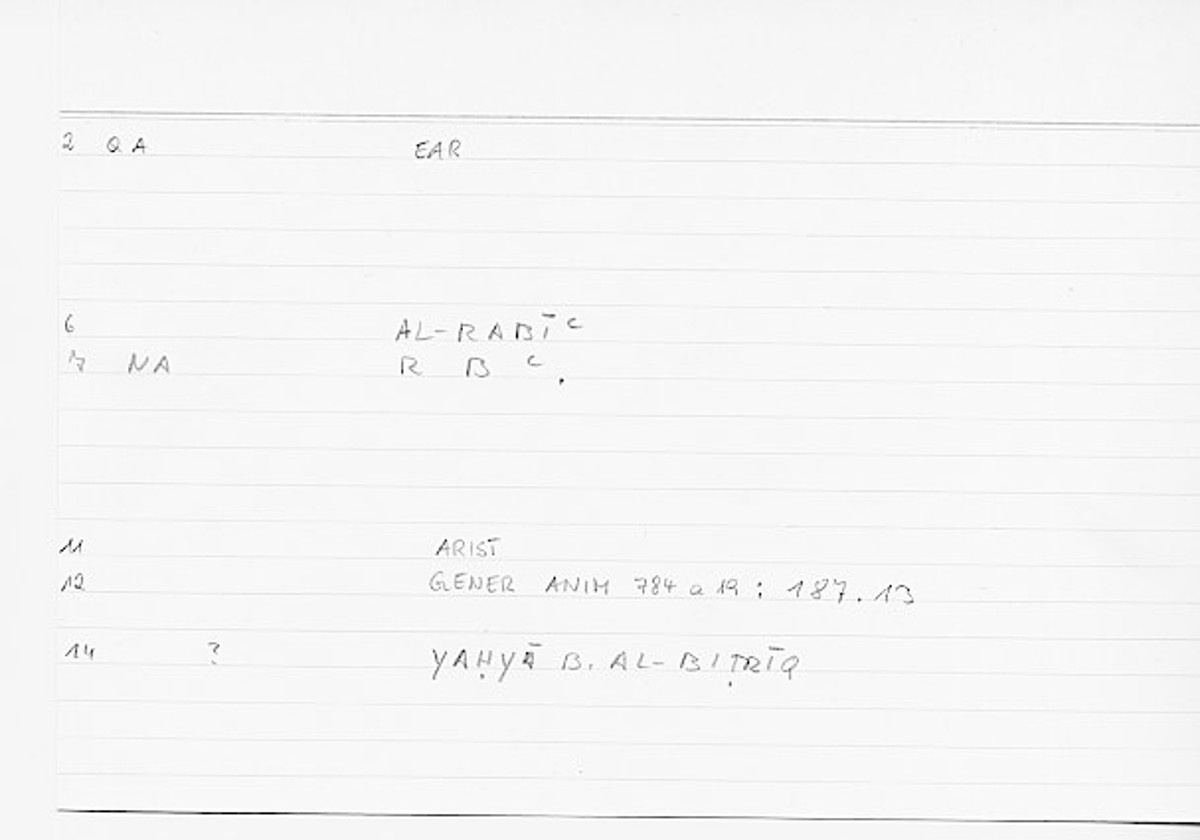 2 QA EAR
6 AL-RABĪʿ
7 NA R B ʿ.
11 ARIST
12 GENER ANIM 784 a 19 : 187.13
14 ? YAḤYĀ B. AL-BIṬRĪQ